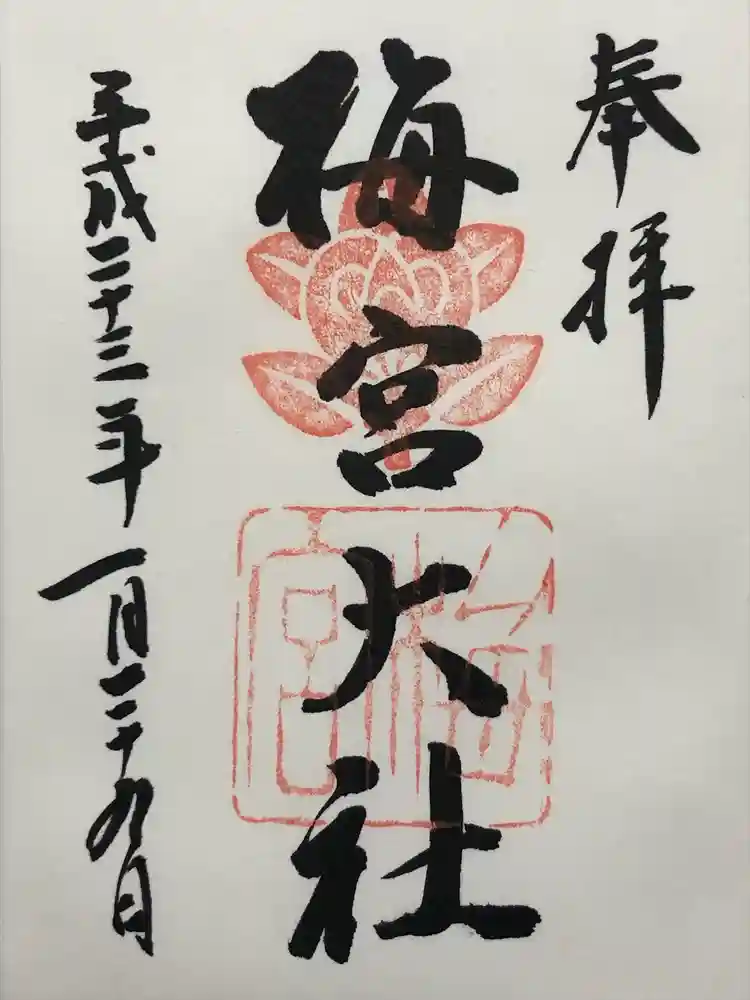 奉拝
梅宮大社
平成二十三年一月二十九日